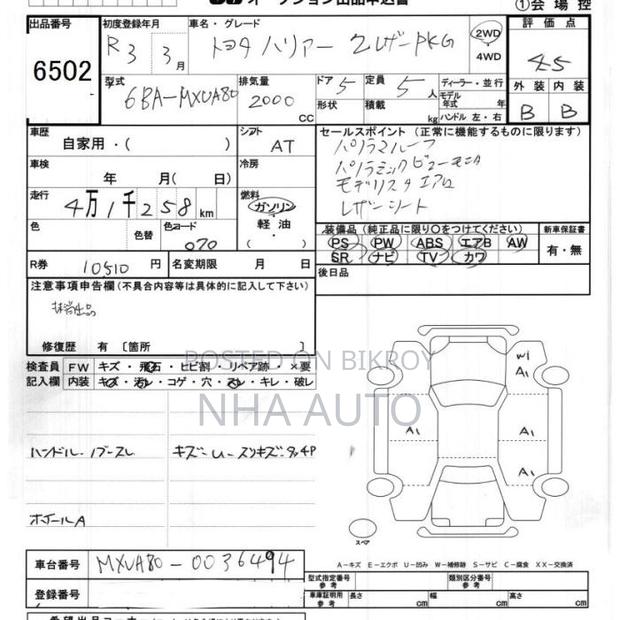 オークション出品申込書
①会場控
出品番号
6502
初度登録年月
R3 3月
車名・グレード
トヨタ ハリアー ZレザーPKG
2WD
4WD
評価点
4.5
外装 内装
B B
型式
6BA-MXUA80
排気量
2000 CC
ドア 5
形状
定員 5 人
積載 kg
ディーラー・並行
モデル年式 年
ハンドル 左・右
車歴
自家用・( )
シフト
AT
セールスポイント (正常に機能するものに限ります)
パノラマルーフ
パノラミックビューモニタ
モデリスタエアロ
レザーシート
車検
年 月( 日)
冷房
走行
4万1千258km
燃料
ガソリン
軽油
( )
色
色替
色コード
070
装備品 (純正品に限り○をつけてください)
PS PW ABS エアB AW
SR ナビ TV カワ
新車保証書
有・無
R券 10510円
名変期限 月 日
後日品
注意事項申告欄 (不具合内容等は具体的に記入して下さい)
修復歴 有 〔箇所 〕
検査員記入欄
FW キズ・飛石・ヒビ割・リペア跡 ×要
内装 キズ・汚レ・コゲ・穴・スレ・キレ・破レ
POSTED ON BIKROY
NHA AUTO
W1
A1
A1
A1
A1
ハンドル・ノブスレ
ホイールA
スペア
A-キズ E-エクボ U-凹み W-補修跡 S-サビ C-腐食 XX-交換済
車台番号
MXUA80-0036494
登録番号
型式指定番号
参考
類別区分番号
参考
車庫証明用
参考
長さ cm
幅 cm
高さ cm